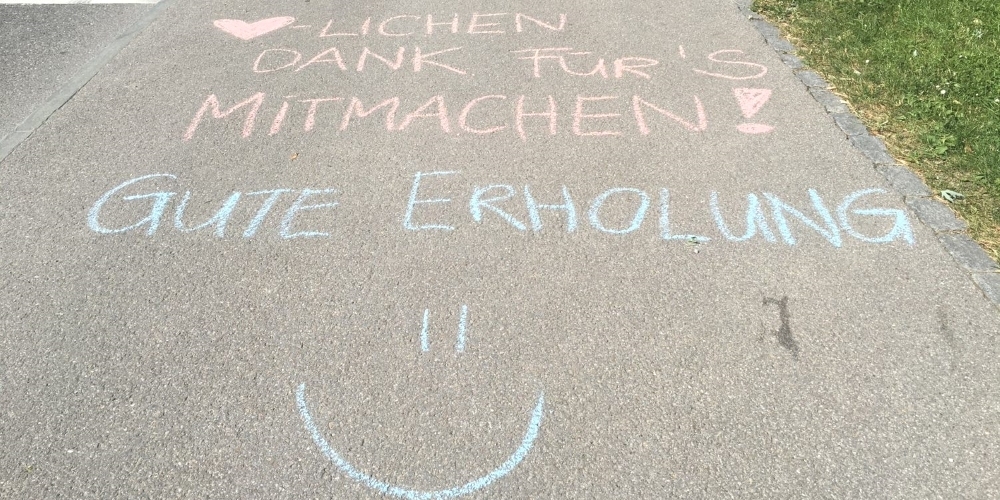 ♥-LICHEN
DANK FÜR'S
MITMACHEN!
GUTE ERHOLUNG